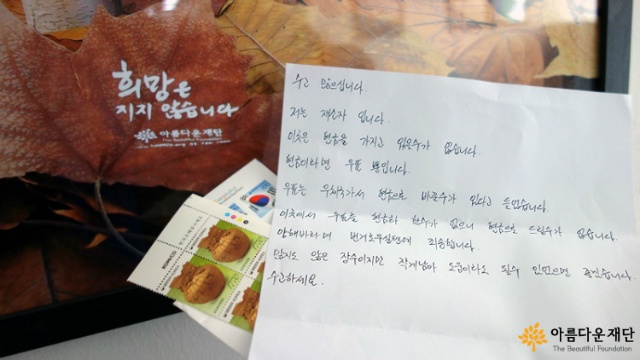 희망은
지지 않습니다
아름다운재단
The Beautiful Foundation
수고 많으십니다.
저는 재소자 입니다.
이곳은 현금을 가지고 있을수가 없습니다.
현금이라면 우표 뿐입니다.
우표는 우체국가서 현금으로 바꿀수가 있다고 들었습니다.
이곳에서 우표를 현금화 할수가 없으니 현금으로 드릴수가 없습니다.
양해바라며 번거로우실텐데 죄송합니다.
많지도 않은 장수이지만 작게남아 도움이라도 될수 있었으면 좋겠습니다.
수고하세요.
아름다운재단
The Beautiful Foundation